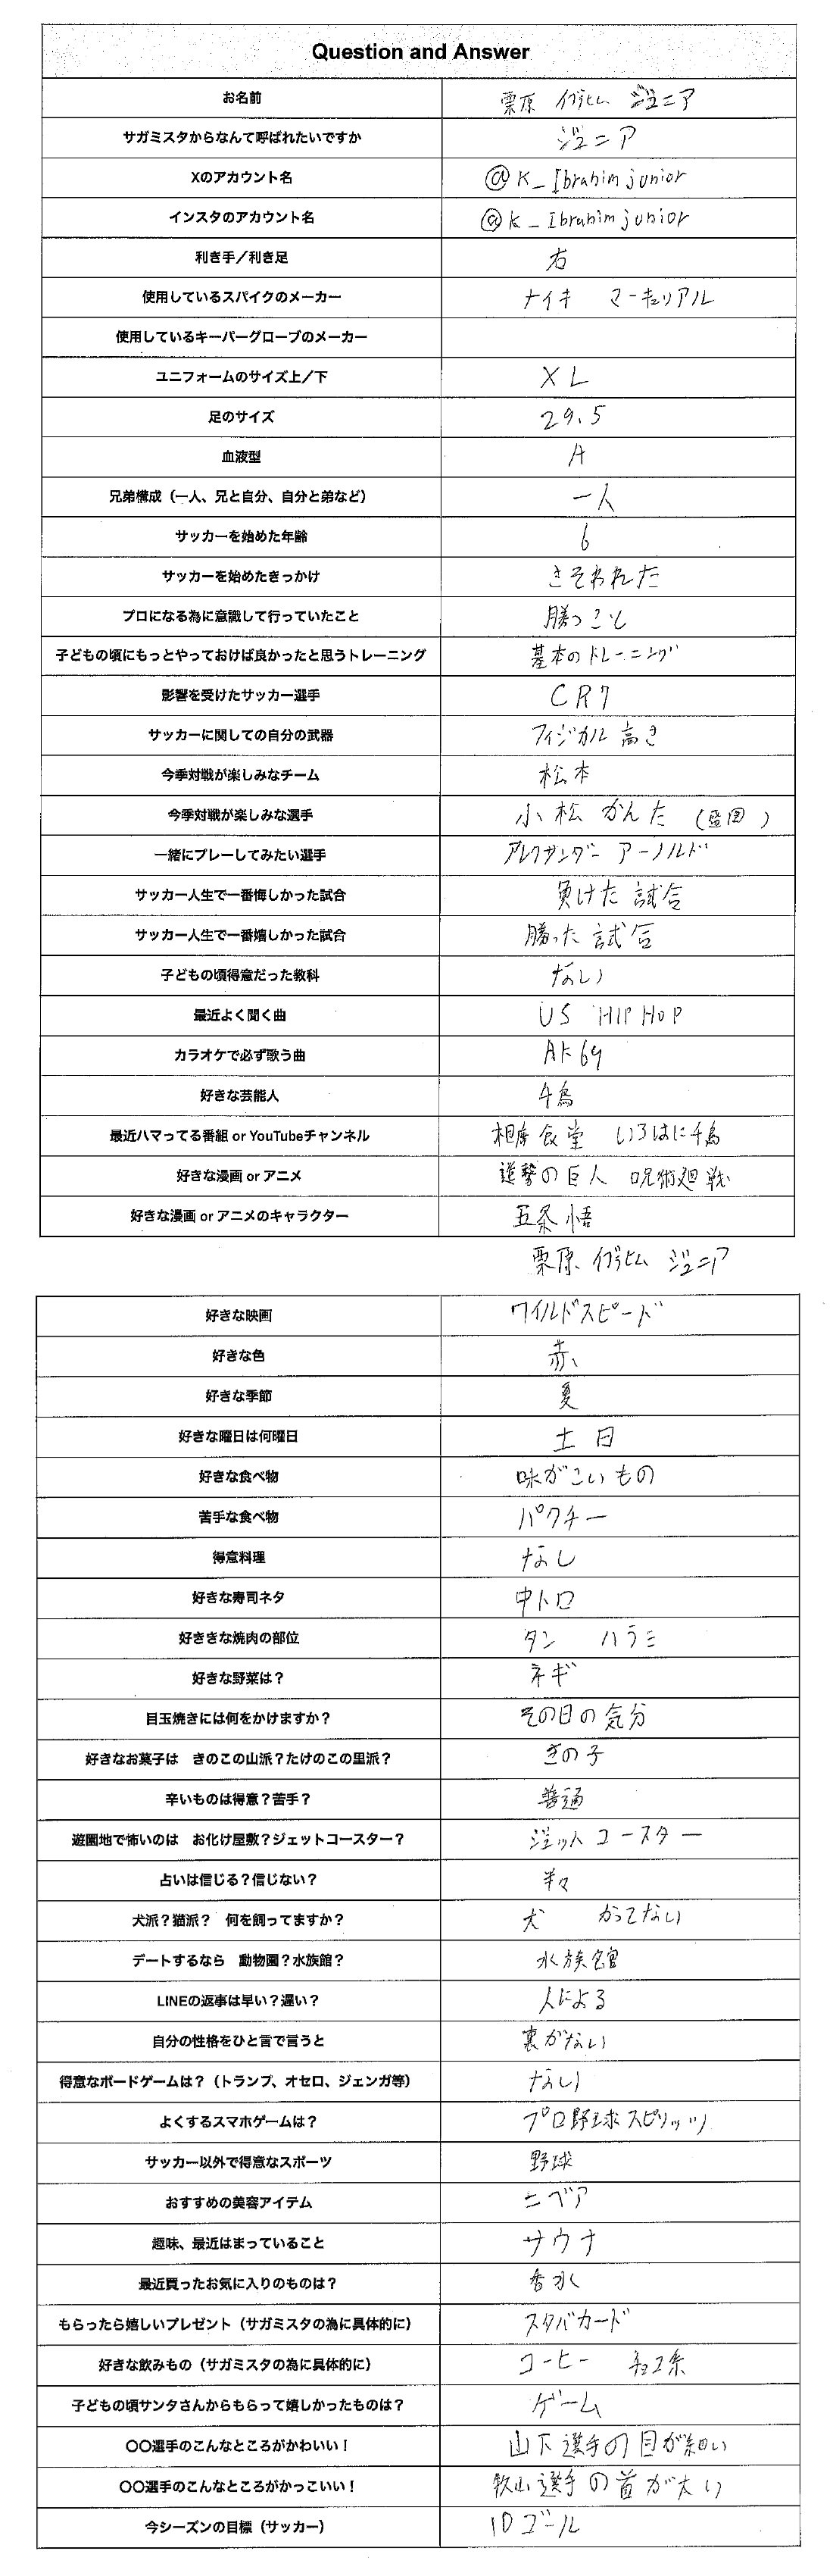 Question and Answer
お名前 栗原 イブラヒム ジュニア
サガミスタからなんて呼ばれたいですか ジュニア
Xのアカウント名 @K_Ibrahimjunior
インスタのアカウント名 @K_Ibrahimjunior
利き手／利き足 右
使用しているスパイクのメーカー ナイキ マーキュリアル
使用しているキーパーグローブのメーカー
ユニフォームのサイズ上／下 XL
足のサイズ 29.5
血液型 A
兄弟構成（一人、兄と自分、自分と弟など） 一人
サッカーを始めた年齢 6
サッカーを始めたきっかけ さそわれた
プロになる為に意識して行っていたこと 勝つこと
子どもの頃にもっとやっておけば良かったと思うトレーニング 基本のトレーニング
影響を受けたサッカー選手 CR7
サッカーに関しての自分の武器 フィジカル 高さ
今季対戦が楽しみなチーム 松本
今季対戦が楽しみな選手 小松 かんた (盛岡)
一緒にプレーしてみたい選手 アレクサンダー アーノルド
サッカー人生で一番悔しかった試合 負けた試合
サッカー人生で一番嬉しかった試合 勝った試合
子どもの頃得意だった教科 ない
最近よく聞く曲 US HIP HOP
カラオケで必ず歌う曲 AK69
好きな芸能人 千鳥
最近ハマってる番組 or YouTubeチャンネル 相席食堂 いろはに千鳥
好きな漫画 or アニメ 進撃の巨人 呪術廻戦
好きな漫画 or アニメのキャラクター 五条悟
栗原 イブラヒム ジュニア
好きな映画 ワイルドスピード
好きな色 赤、
好きな季節 夏
好きな曜日は何曜日 土 日
好きな食べ物 味がこいもの
苦手な食べ物 パクチー
得意料理 なし
好きな寿司ネタ 中トロ
好ききな焼肉の部位 タン ハラミ
好きな野菜は？ ネギ
目玉焼きには何をかけますか？ その日の気分
好きなお菓子は きのこの山派？たけのこの里派？ きの子
辛いものは得意？苦手？ 普通
遊園地で怖いのは お化け屋敷？ジェットコースター？ ジェットコースター
占いは信じる？信じない？ 半々
犬派？猫派？ 何を飼ってますか？ 犬 かってない
デートするなら 動物園？水族館？ 水族館
LINEの返事は早い？遅い？ 人による
自分の性格をひと言で言うと 裏がない
得意なボードゲームは？（トランプ、オセロ、ジェンガ等） ない
よくするスマホゲームは？ プロ野球スピリッツ
サッカー以外で得意なスポーツ 野球
おすすめの美容アイテム ニベア
趣味、最近はまっていること サウナ
最近買ったお気に入りのものは？ 香水
もらったら嬉しいプレゼント（サガミスタの為に具体的に） スタバカード
好きな飲みもの（サガミスタの為に具体的に） コーヒー チョコ系
子どもの頃サンタさんからもらって嬉しかったものは？ ゲーム
〇〇選手のこんなところがかわいい！ 山下選手の目が細い
〇〇選手のこんなところがかっこいい！ 牧山選手の首が太い
今シーズンの目標（サッカー） 10ゴール